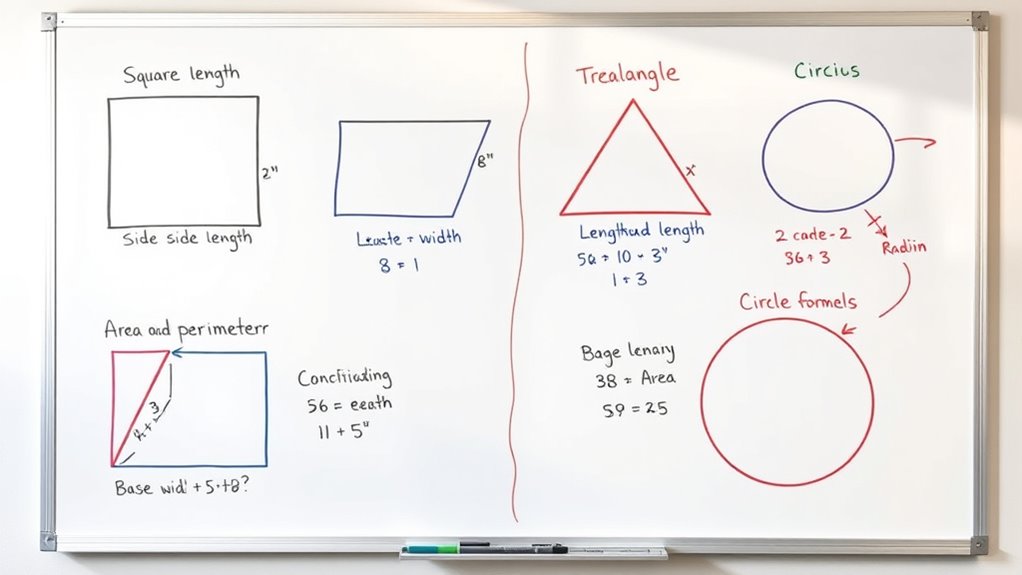 Square length
2"
Side side length
8"
+ width
8 = 1
Area and perimeterr
3
Base wid' + 5·+8?
56 = eeath
11 + 5"
Trealangle
x
Lengthud length
5a + 10 - 3"
1 + 3
Circius
2 cade-2
36 + 3
Radiin
Circle formels
Bage lenary
38 = Area
59 = 25